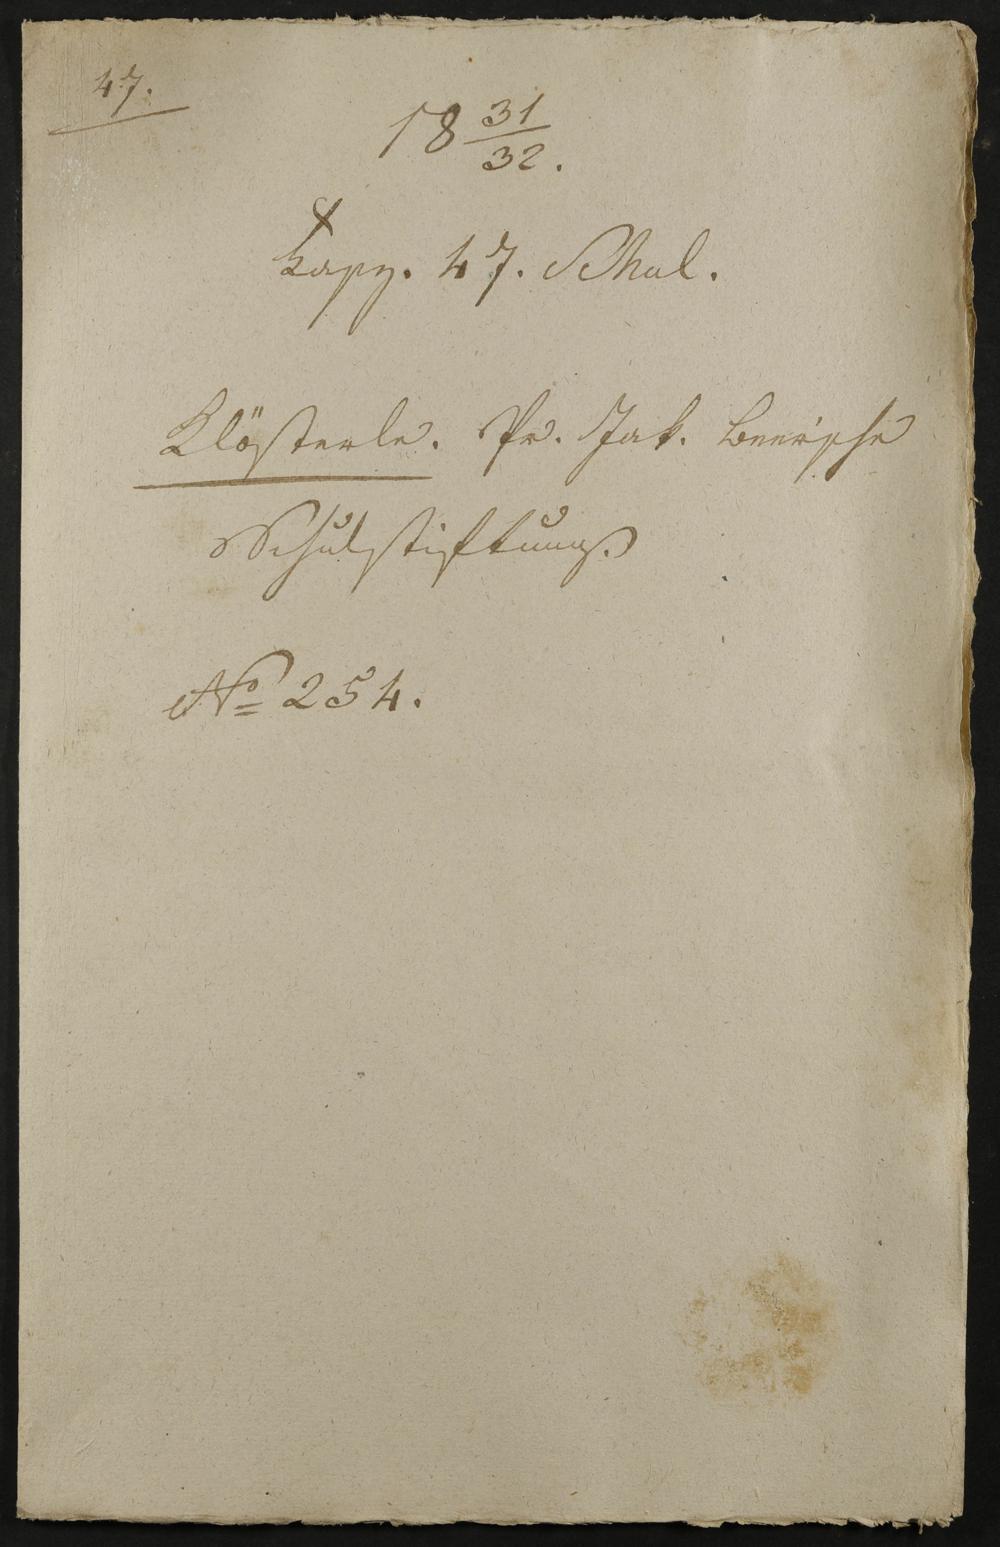 47.
18 31/32.
Kapz. 47. Schul.
Klösterle. Pr. Jak. Beer'sche
Schulstiftung
No 254.